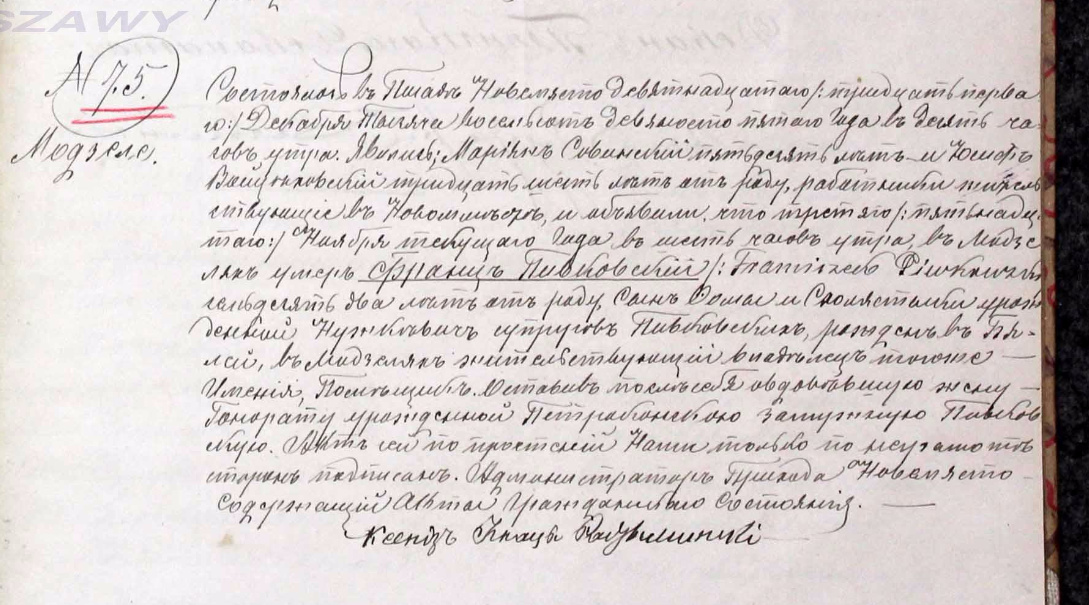 SZAWY
№ 75.
Модзеле.
Состоялось въ Новемясто девятнадцатаго /: тридцать перва-
го:/ Декабря Тысяча восемьсотъ девяносто пятаго Года въ десять ча-
совъ утра. Явились; Маріянъ Совинскій пятьдесятъ лѣтъ и Юсифъ
тридцать шесть лѣтъ отъ роду, работники житель-
ствующіе въ и объявили, что третяго /: пятьнадца-
таго:/ Ноября текущаго Года въ шесть часовъ утра, въ Модзе-
ляхъ умеръ Францъ Пивковскій /: Franciszek Piwkowski
семьдесятъ два лѣтъ отъ роду, Сынъ Ѳомы и Схолястыки урож-
денной супруговъ Пивковскихъ, рожденъ въ Бя-
лой, въ Модзеляхъ жительствующій владѣлецъ тогоже
Имѣнія, Помѣщикъ. Оставивъ послѣ себя овдовѣвшую жену
Гонорату урожденной замужную Пивков
скую. Актъ сей по прочтеніи Нами только по неграмотѣ
сторонъ подписанъ. Администраторъ Прихода Новемясто
содержащій Акты Гражданскаго Состоянія.
Ксендзъ Игнацы